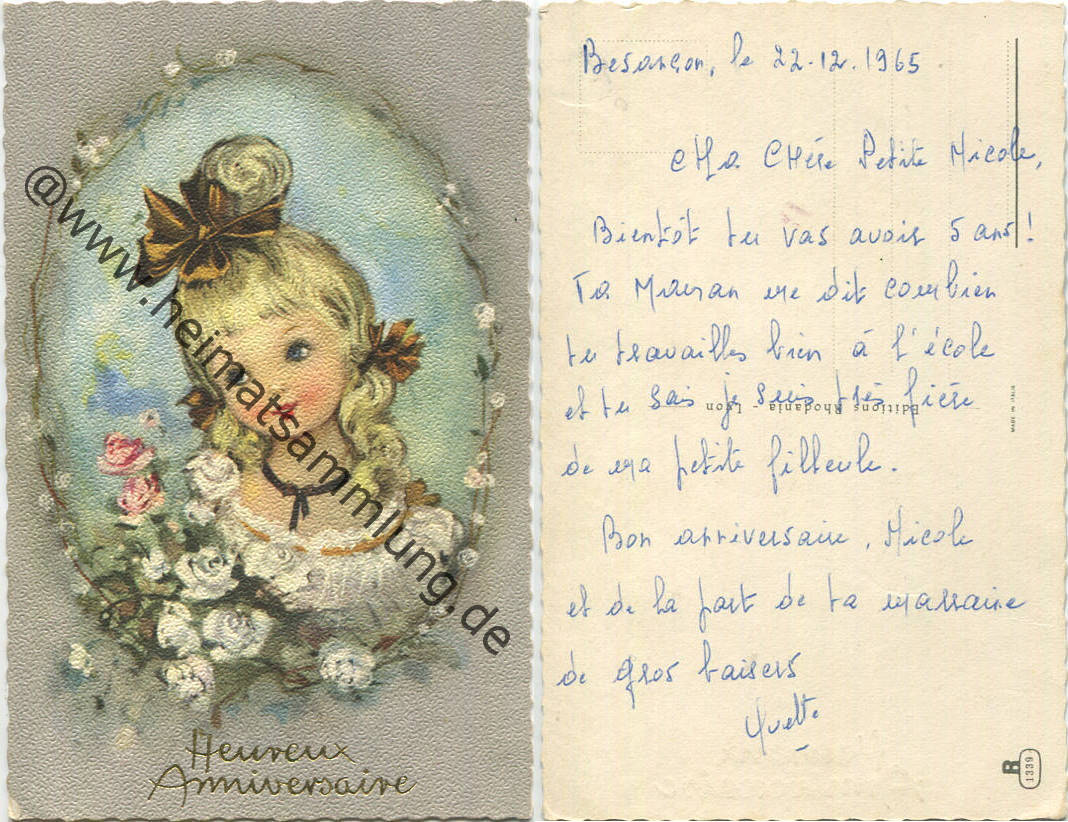 @www.heimatsammlung.de
Heureux
Anniversaire
Besançon, le 22-12.1965
Ma Chère Petite Nicole,
Bientôt tu vas avoir 5 ans!
Ta Maman me dit combien
tu travailles bien à l'école
et tu sais je suis très fière
de ma petite filleule.
Bon anniversaire, Nicole
et de la part de ta marraine
de gros baisers
Yvette
Editions Rhodania - Lyon
MADE IN ITALY
R
1339